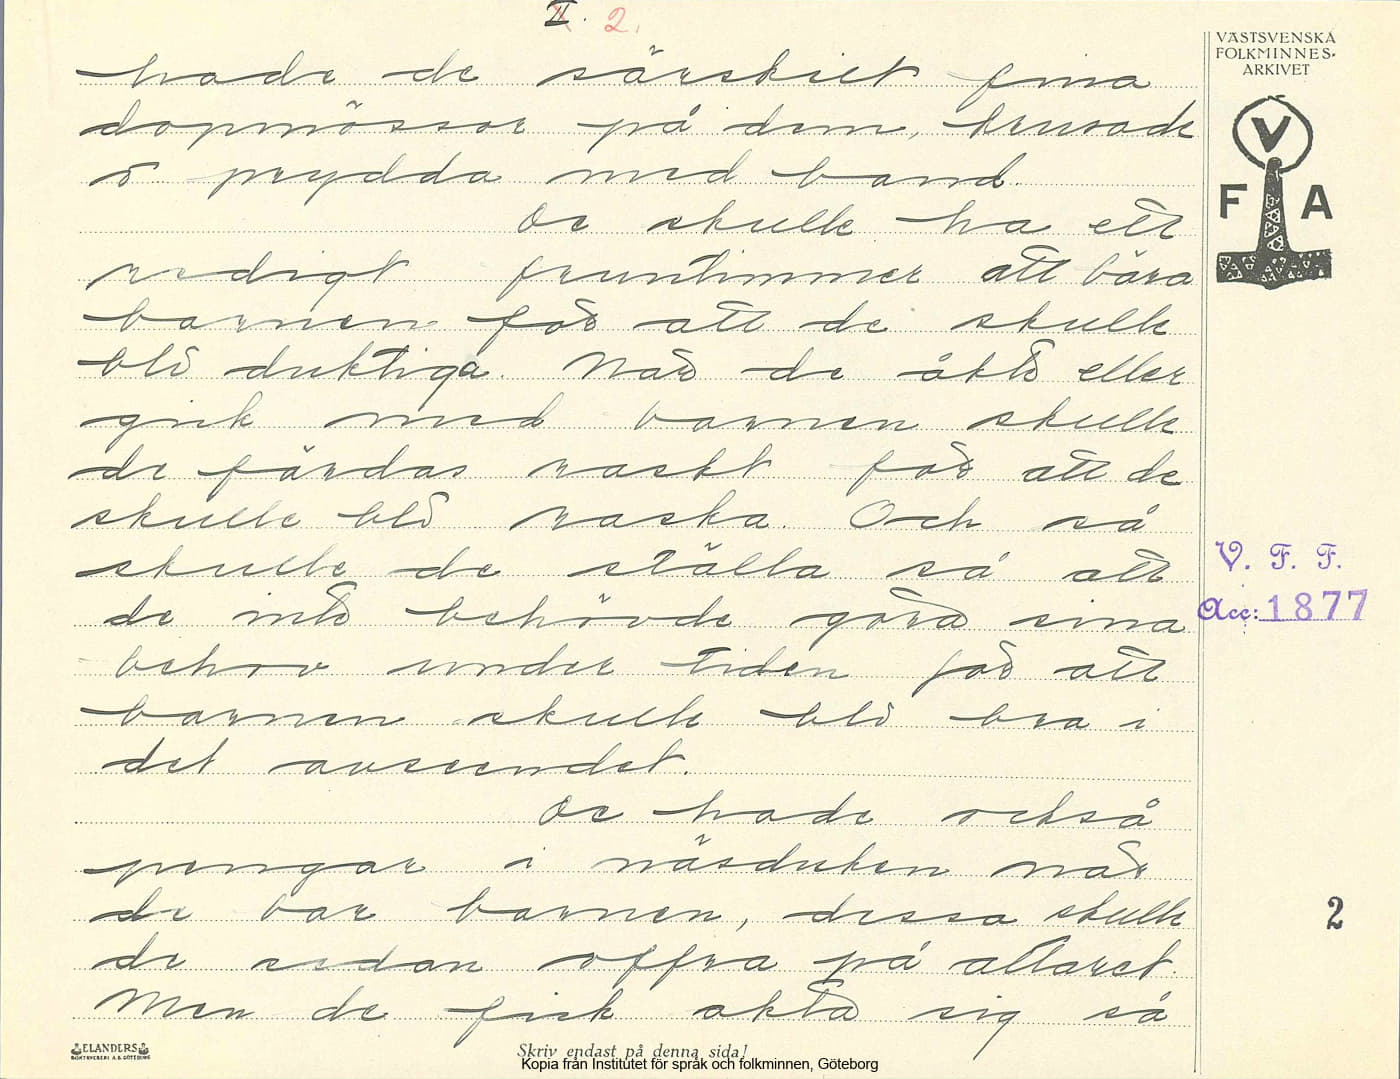 II. 2.
VÄSTSVENSKA
FOLKMINNES-
ARKIVET
V
F A
hade de särskilt fina
dopmössor på dem, krusade
å prydda med band.
De skulle ha ett
redigt fruntimmer att bära
barnen för att de skulle
bli duktiga. När de åkte eller
gick med barnen skulle
de färdas raskt för att de
skulle bli raska. Och så
skulle de ställa så att
de inte behövde göra sina
behov under tiden för att
barnen skulle bli bra i
det avseendet.
De hade också
pengar i näsduken när
de bar barnen, dessa skulle
de sedan offra på altaret.
Men de fick akta sig så
V. F. F.
Acc: 1877
2
ELANDERS
BOKTRYCKERI A.B. GÖTEBORG
Skriv endast på denna sida!
Kopia från Institutet för språk och folkminnen, Göteborg